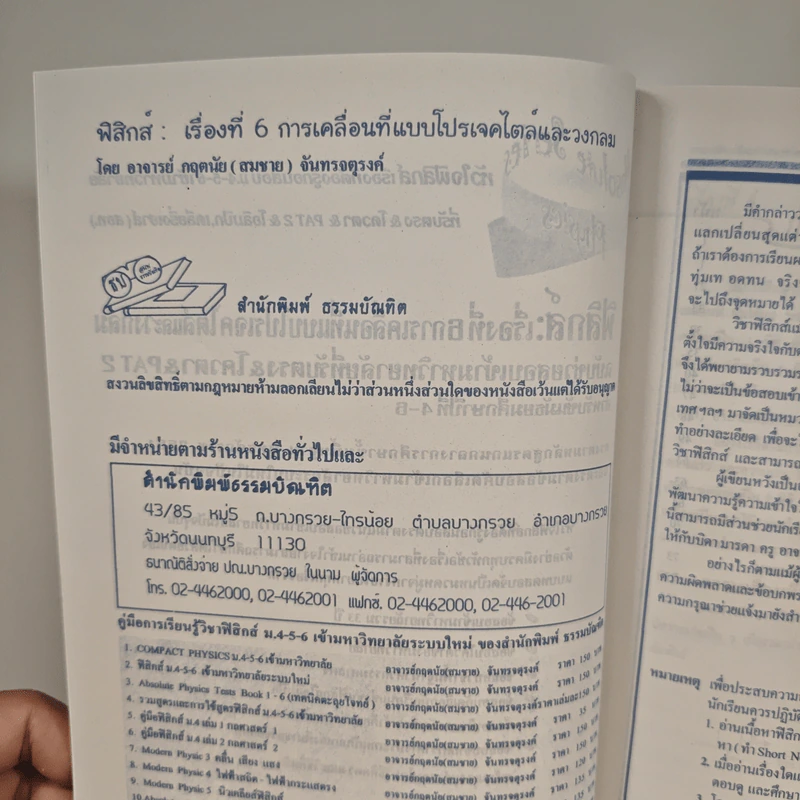 ฟิสิกส์ : เรื่องที่ 6 การเคลื่อนที่แบบโปรเจคไตล์และวงกลม
โดย อาจารย์ กฤตนัย (สมชาย) จันทรจตุรงค์
สำนักพิมพ์ ธรรมบัณฑิต
สงวนลิขสิทธิ์ตามกฎหมายห้ามลอกเลียนไม่ว่าส่วนหนึ่งส่วนใดของหนังสือเว้นแต่ได้รับอนุญาต
มีจำหน่ายตามร้านหนังสือทั่วไปและ
สำนักพิมพ์ธรรมบัณฑิต
43/85 หมู่5 ถ.บางกรวย-ไทรน้อย ตำบลบางกรวย อำเภอบางกรวย
จังหวัดนนทบุรี 11130
ธนาณัติสั่งจ่าย ปณ.บางกรวย ในนาม ผู้จัดการ
โทร. 02-4462000, 02-4462001 แฟกซ์. 02-4462000, 02-446-2001
คู่มือการเรียนรู้วิชาฟิสิกส์ ม.4-5-6 เข้ามหาวิทยาลัยระบบใหม่ ของสำนักพิมพ์ ธรรมบัณฑิต
1. COMPACT PHYSICS ม.4-5-6 เข้ามหาวิทยาลัย อาจารย์กฤตนัย(สมชาย) จันทรจตุรงค์ ราคา 150 บาท
2. ฟิสิกส์ ม.4-5-6 เข้ามหาวิทยาลัยระบบใหม่ อาจารย์กฤตนัย(สมชาย) จันทรจตุรงค์ ราคา
3. Absolute Physics Tests Book 1 - 6 (เทคนิคตะลุยโจทย์) อาจารย์กฤตนัย(สมชาย) จันทรจตุรงค์ราคาเล่มละ150 บาท
4. รวมสูตรและการใช้สูตรฟิสิกส์ ม.4-5-6เข้ามหาวิทยาลัย อาจารย์กฤตนัย(สมชาย) จันทรจตุรงค์ ราคา 35 บาท
5. คู่มือฟิสิกส์ ม.4 เล่ม 1 กลศาสตร์ 1 อาจารย์กฤตนัย(สมชาย) จันทรจตุรงค์ ราคา
6. คู่มือฟิสิกส์ ม.4 เล่ม 2 กลศาสตร์ 2 อาจารย์กฤตนัย(สมชาย) จันทรจตุรงค์ ราคา
7. Modern Physic 3 คลื่น เสียง แสง อาจารย์กฤตนัย(สมชาย) จันทรจตุรงค์ ราคา
8. Modern Physic 4 ไฟฟ้าสถิต - ไฟฟ้ากระแสตรง อาจารย์กฤตนัย(สมชาย) จันทรจตุรงค์ ราคา
9. Modern Physic 5 นิวเคลียร์ฟิสิกส์ อาจารย์กฤตนัย(สมชาย) จันทรจตุรงค์ ราคา
มีคำกล่าวว
แลกเปลี่ยนสุดแต่
ถ้าเราต้องการเรียนผ
ทุ่มเท อดทน จริง
จะไปถึงจุดหมายได้
วิชาฟิสิกส์เม
ตั้งใจมีความจริงใจกับต
จึงได้พยายามรวบรวมร
ไม่ว่าจะเป็นข้อสอบเข้า
เทศฯลฯ มาจัดเป็นหมว
ทำอย่างละเอียด เพื่อจะ
วิชาฟิสิกส์ และสามารถ
ผู้เขียนหวังเป็น
พัฒนาความรู้ความเข้าใจ
นี้สามารถมีส่วนช่วยนักเรีย
ให้กับบิดา มารดา ครู อาจ
อย่างไรก็ตามแม้ผู้
ความผิดพลาดและข้อบกพร
ความกรุณาช่วยแจ้งมายังสำ
หมายเหตุ เพื่อประสบความ
นักเรียนควรปฏิบัติ
1. อ่านเนื้อหาฟิสิก
หา (ทำ Short N
2. เมื่ออ่านเรื่องใดแ
ตอบดู และศึกษา